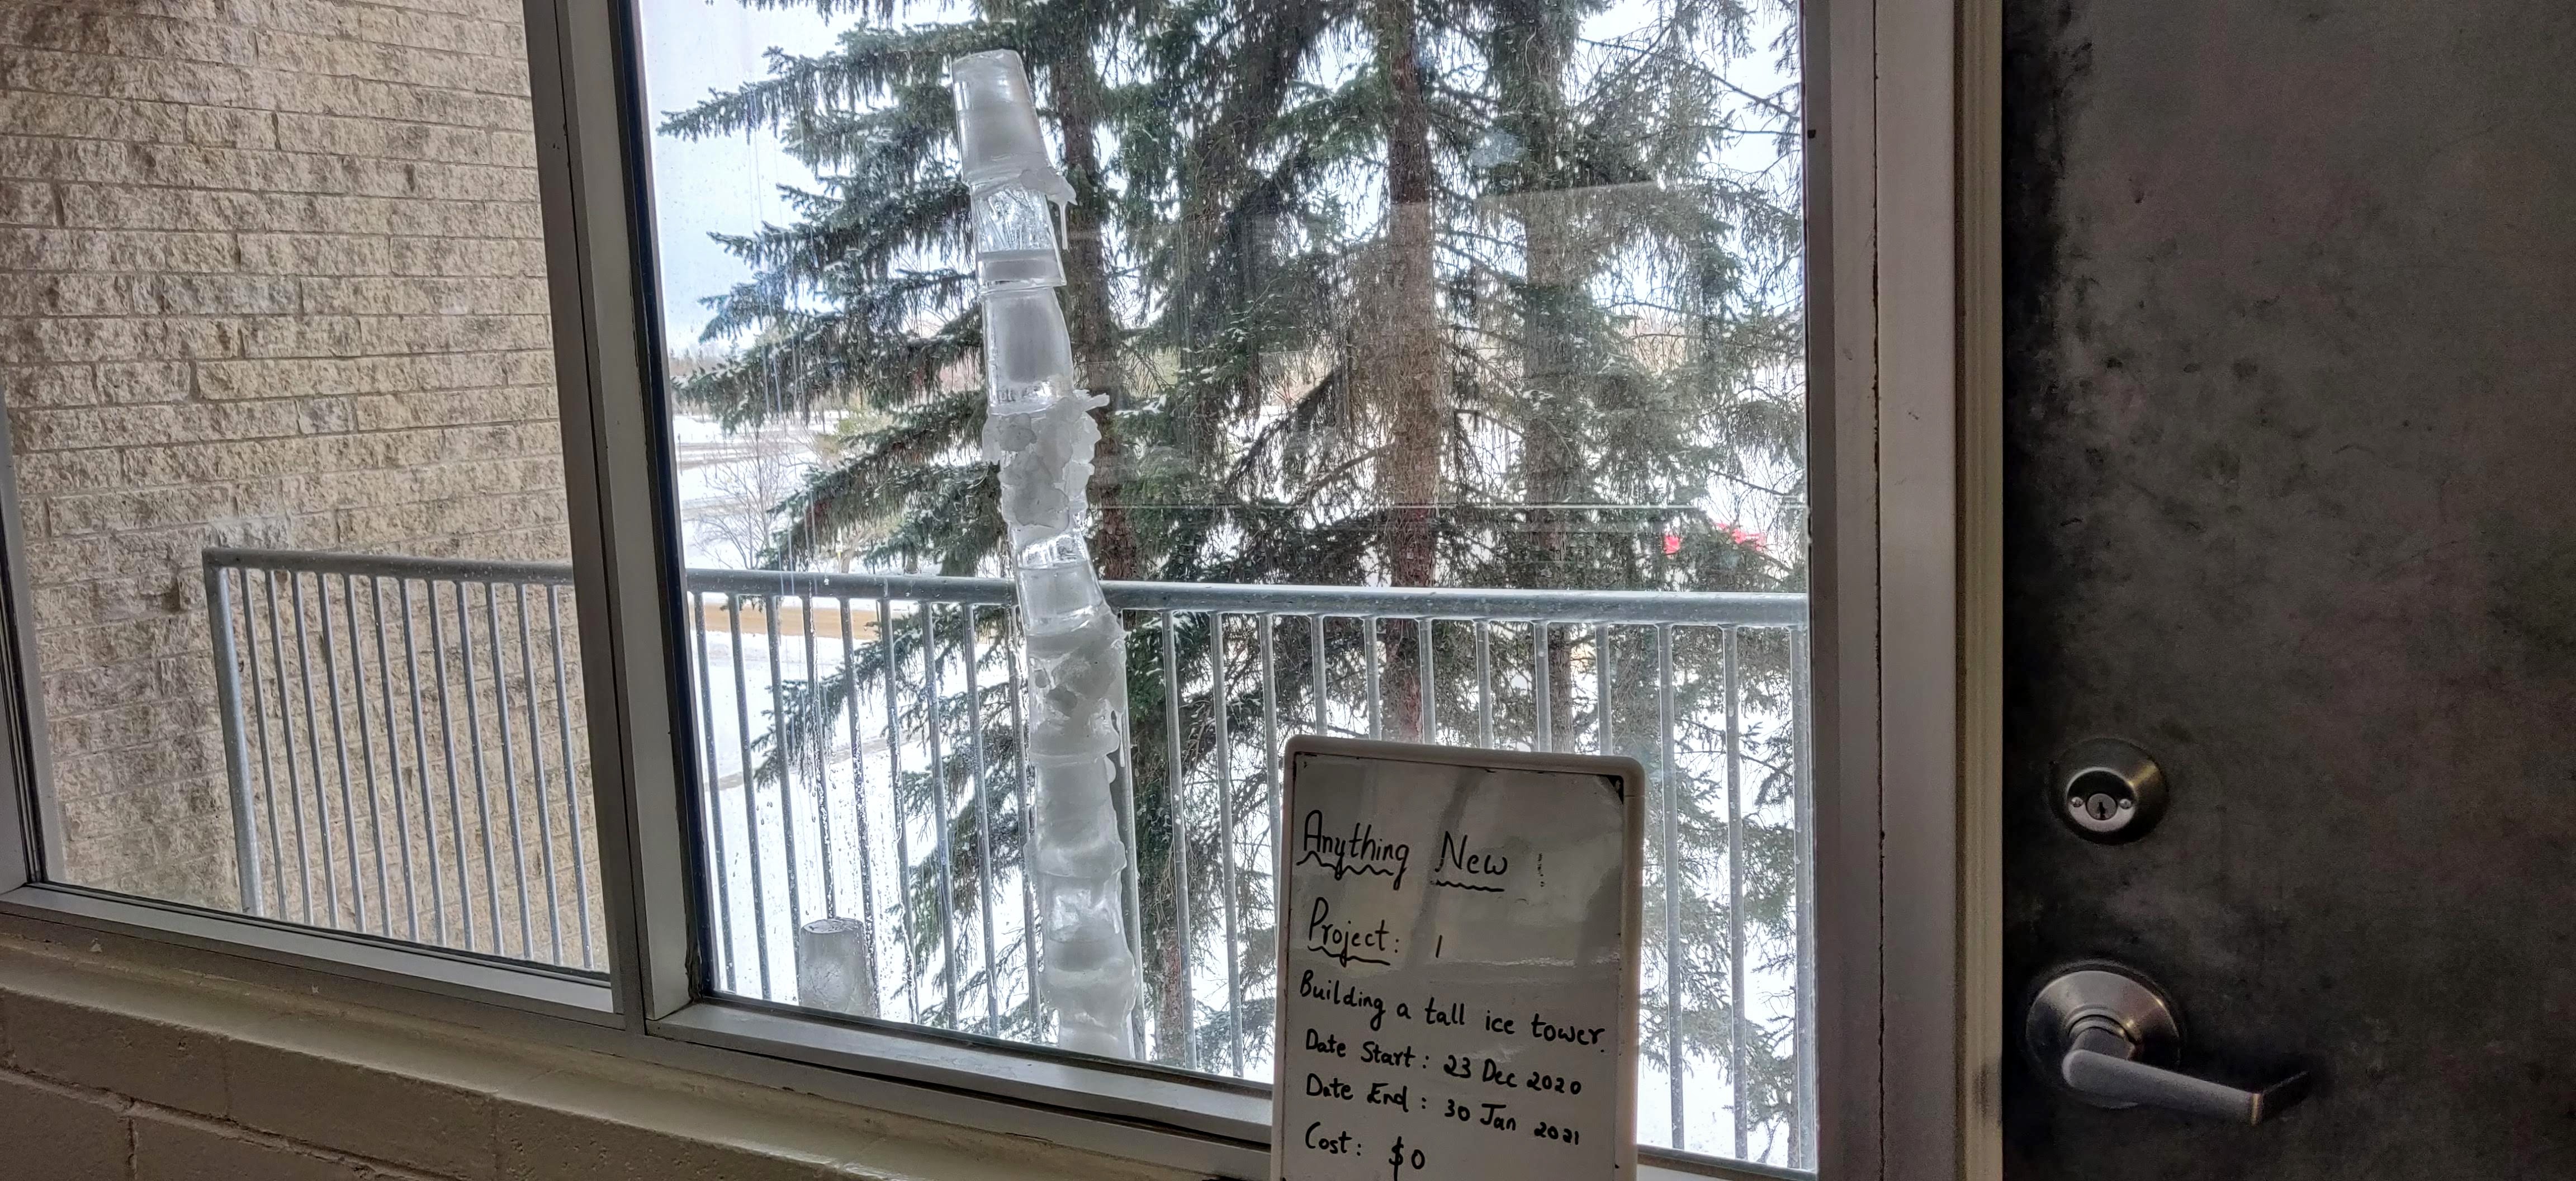 Anything New !
Project: 1
Building a tall ice tower.
Date Start : 23 Dec 2020
Date End : 30 Jan 2021
Cost: $0